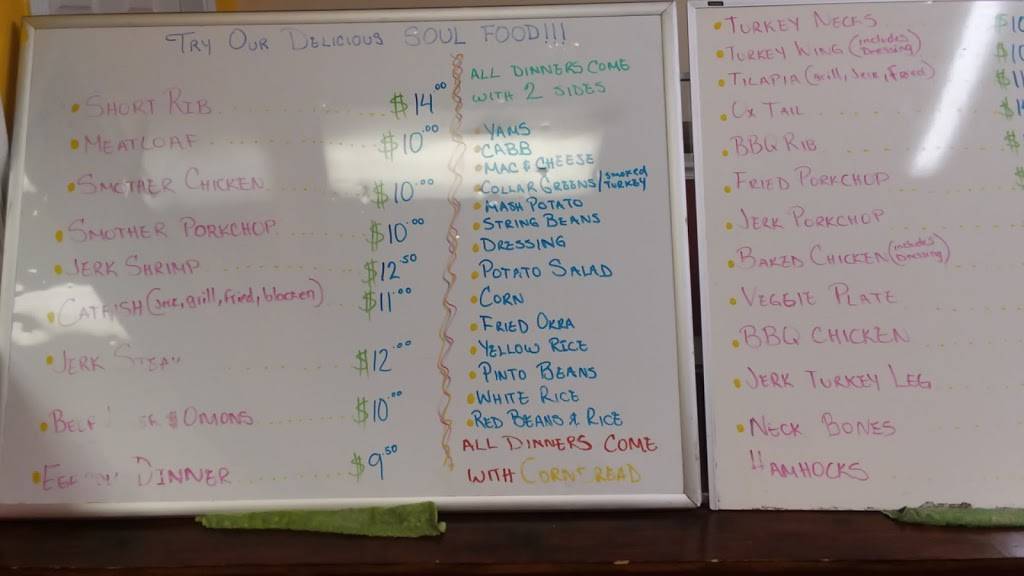 TRY OUR DELICIOUS SOUL FOOD!!!
SHORT RIB $14.00
MEATLOAF $10.00
SMOTHER CHICKEN $10.00
SMOTHER PORKCHOP $10.00
JERK SHRIMP $12.50
CATFISH (Jerk, grill, fried, blacken) $11.00
JERK STEAK $12.00
BEEF & ONIONS $10.00
DINNER $9.50
ALL DINNERS COME
WITH 2 SIDES
YAMS
CABB
MAC & CHEESE
COLLAR GREENS/SMOKED TURKEY
MASH POTATO
STRING BEANS
DRESSING
POTATO SALAD
CORN
FRIED OKRA
YELLOW RICE
PINTO BEANS
WHITE RICE
RED BEANS & RICE
ALL DINNERS COME
WITH CORNBREAD
TURKEY NECKS
TURKEY WING (includes Dressing)
TILAPIA (Grill, Jerk, Fried)
OX TAIL
BBQ RIB
FRIED PORKCHOP
JERK PORKCHOP
BAKED CHICKEN (includes Dressing)
VEGGIE PLATE
BBQ CHICKEN
JERK TURKEY LEG
NECK BONES
HAMHOCKS